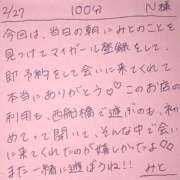 2/27 100分 N様
今回は、当日の朝にみとのことを
見つけてマイガール登録をして、
即予約をして会いに来てくれて
本当にありがとう♡このお店の
利用も、西船橋で遊ぶのも、初
めてって聞いて、そんな中で会い
に来てくれたのが嬉しかったよ♡
また一緒に遊ぼうね!! みと